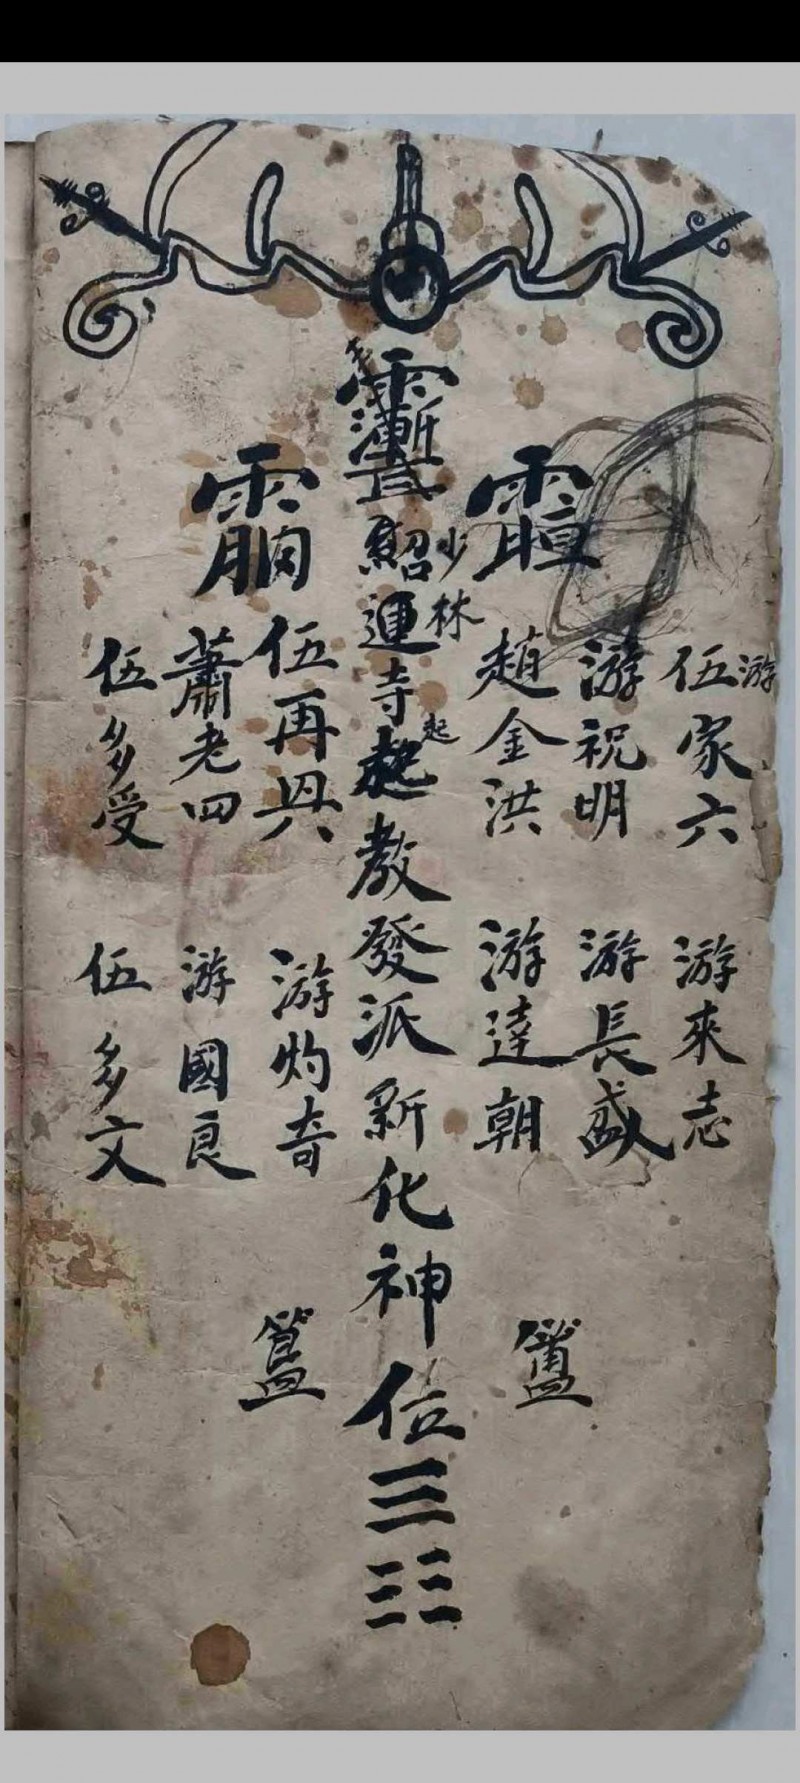 游
伍家六 游來志
游祝明 游長盛
趙金洪 游達朝
少林
起
紹運寺起教發派新化神位三三三
伍再興 游灼奇
蕭老四 游國良
伍多受 伍多文